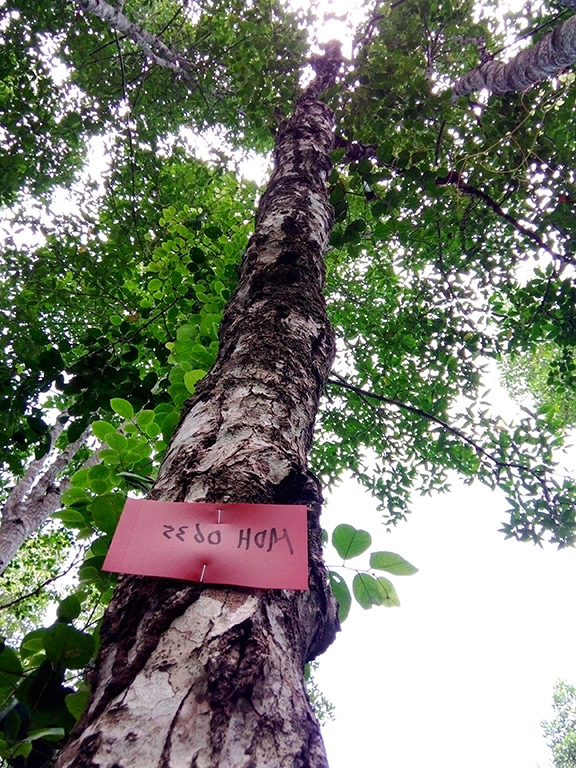 MDH 0635